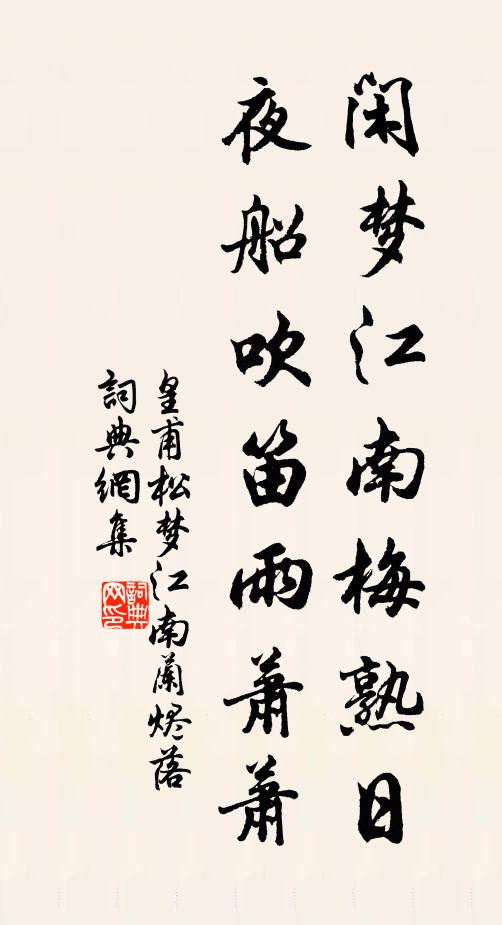 闲梦江南梅熟日
夜船吹笛雨萧萧
皇甫松梦江南蘭烬落
詞典網集
詞典
网印